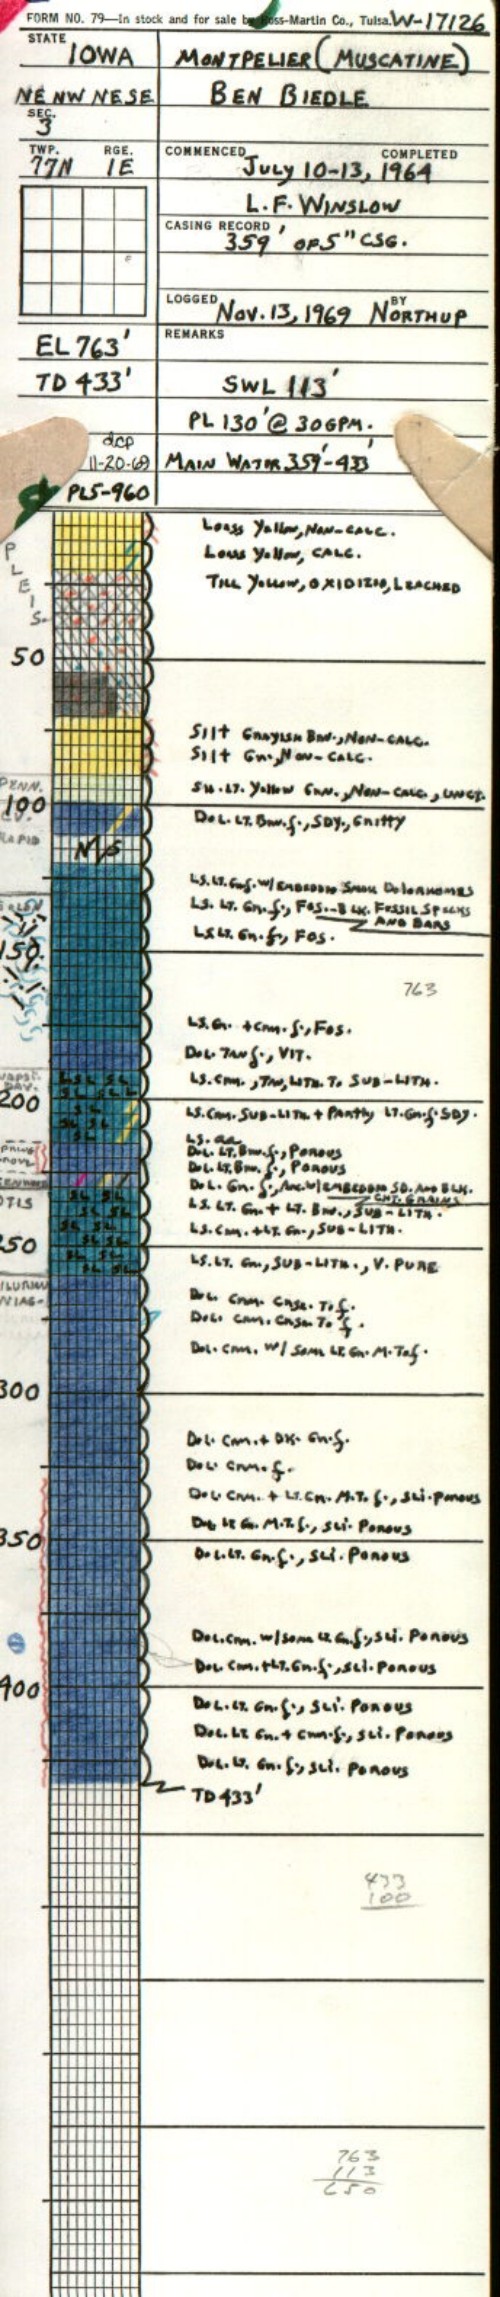 FORM NO. 79—In stock and for sale by Ross-Martin Co., Tulsa. W-17126
STATE
IOWA
MONTPELIER (MUSCATINE)
NE NW NE SE
BEN BIEDLE
SEC.
3
TWP. RGE.
77N 1E
COMMENCED COMPLETED
July 10-13, 1964
L.F. WINSLOW
CASING RECORD
359' OF 5" CSG.
LOGGED BY
Nov. 13, 1969 NORTHUP
EL 763'
REMARKS
TD 433'
SWL 113'
PL 130' @ 30 GPM.
dcp
11-20-69
MAIN WATER 359'-433'
PLS-960
PLEIS.
LOESS YELLOW, NON-CALC.
LOESS YELLOW, CALC.
TILL YELLOW, OXIDIZED, LEACHED
50
SILT GRAYISH BRN., NON-CALC.
SILT GN., NON-CALC.
PENN.
SH. LT. YELLOW GRN., NON-CALC.,
100
DOL. LT. BRN. f., SDY., GRITTY
RAPID
N/S
LS. LT. GN. f. W/ EMBEDDED SMALL DOLORHOMBS
LS. LT. GN. f., FOS.-BLK. FOSSIL SPECKS
AND BARS
LS. LT. GN. f., FOS.
150
763
LS. GN. + CRM. f., FOS.
DOL. TAN f., VIT.
LS. CRM., TAN, LITH. TO SUB-LITH.
WAPSI.
DAV.
LSL SL
SL SL SL
200
LS. CRM. SUB-LITH. + PARTLY LT. GN. f. SDY.
LS. aa
DOL. LT. BRN. f., POROUS
DOL. LT. BRN. f., POROUS
DOL. GN. f., ARE. W/ EMBEDDED SD. AND BLK.
CHT. GRAINS
OTIS
LS. LT. GN. + LT. BRN., SUB-LITH.
LS. CRM. + LT. GN., SUB-LITH.
250
LS. LT. GN., SUB-LITH., V. PURE
SILURIAN
NIAG.
DOL. CRM. CRSE. TO f.
DOL. CRM. CRSE. TO f.
DOL. CRM. W/ SOME LT. GN. M. TO f.
300
DOL. CRM. + DK. GN. f.
DOL. CRM. f.
DOL. CRM. + LT. GN. M.T. f., SLI. POROUS
DOL. LT. GN. M.T. f., SLI. POROUS
350
DOL. LT. GN. f., SLI. POROUS
DOL. CRM. W/ SOME LT. GN. f., SLI. POROUS
DOL. CRM. + LT. GN. f., SLI. POROUS
400
DOL. LT. GN. f., SLI. POROUS
DOL. LT. GN. + CRM. f., SLI. POROUS
DOL. LT. GN. f., SLI. POROUS
TD 433'
433
100
763
113
650